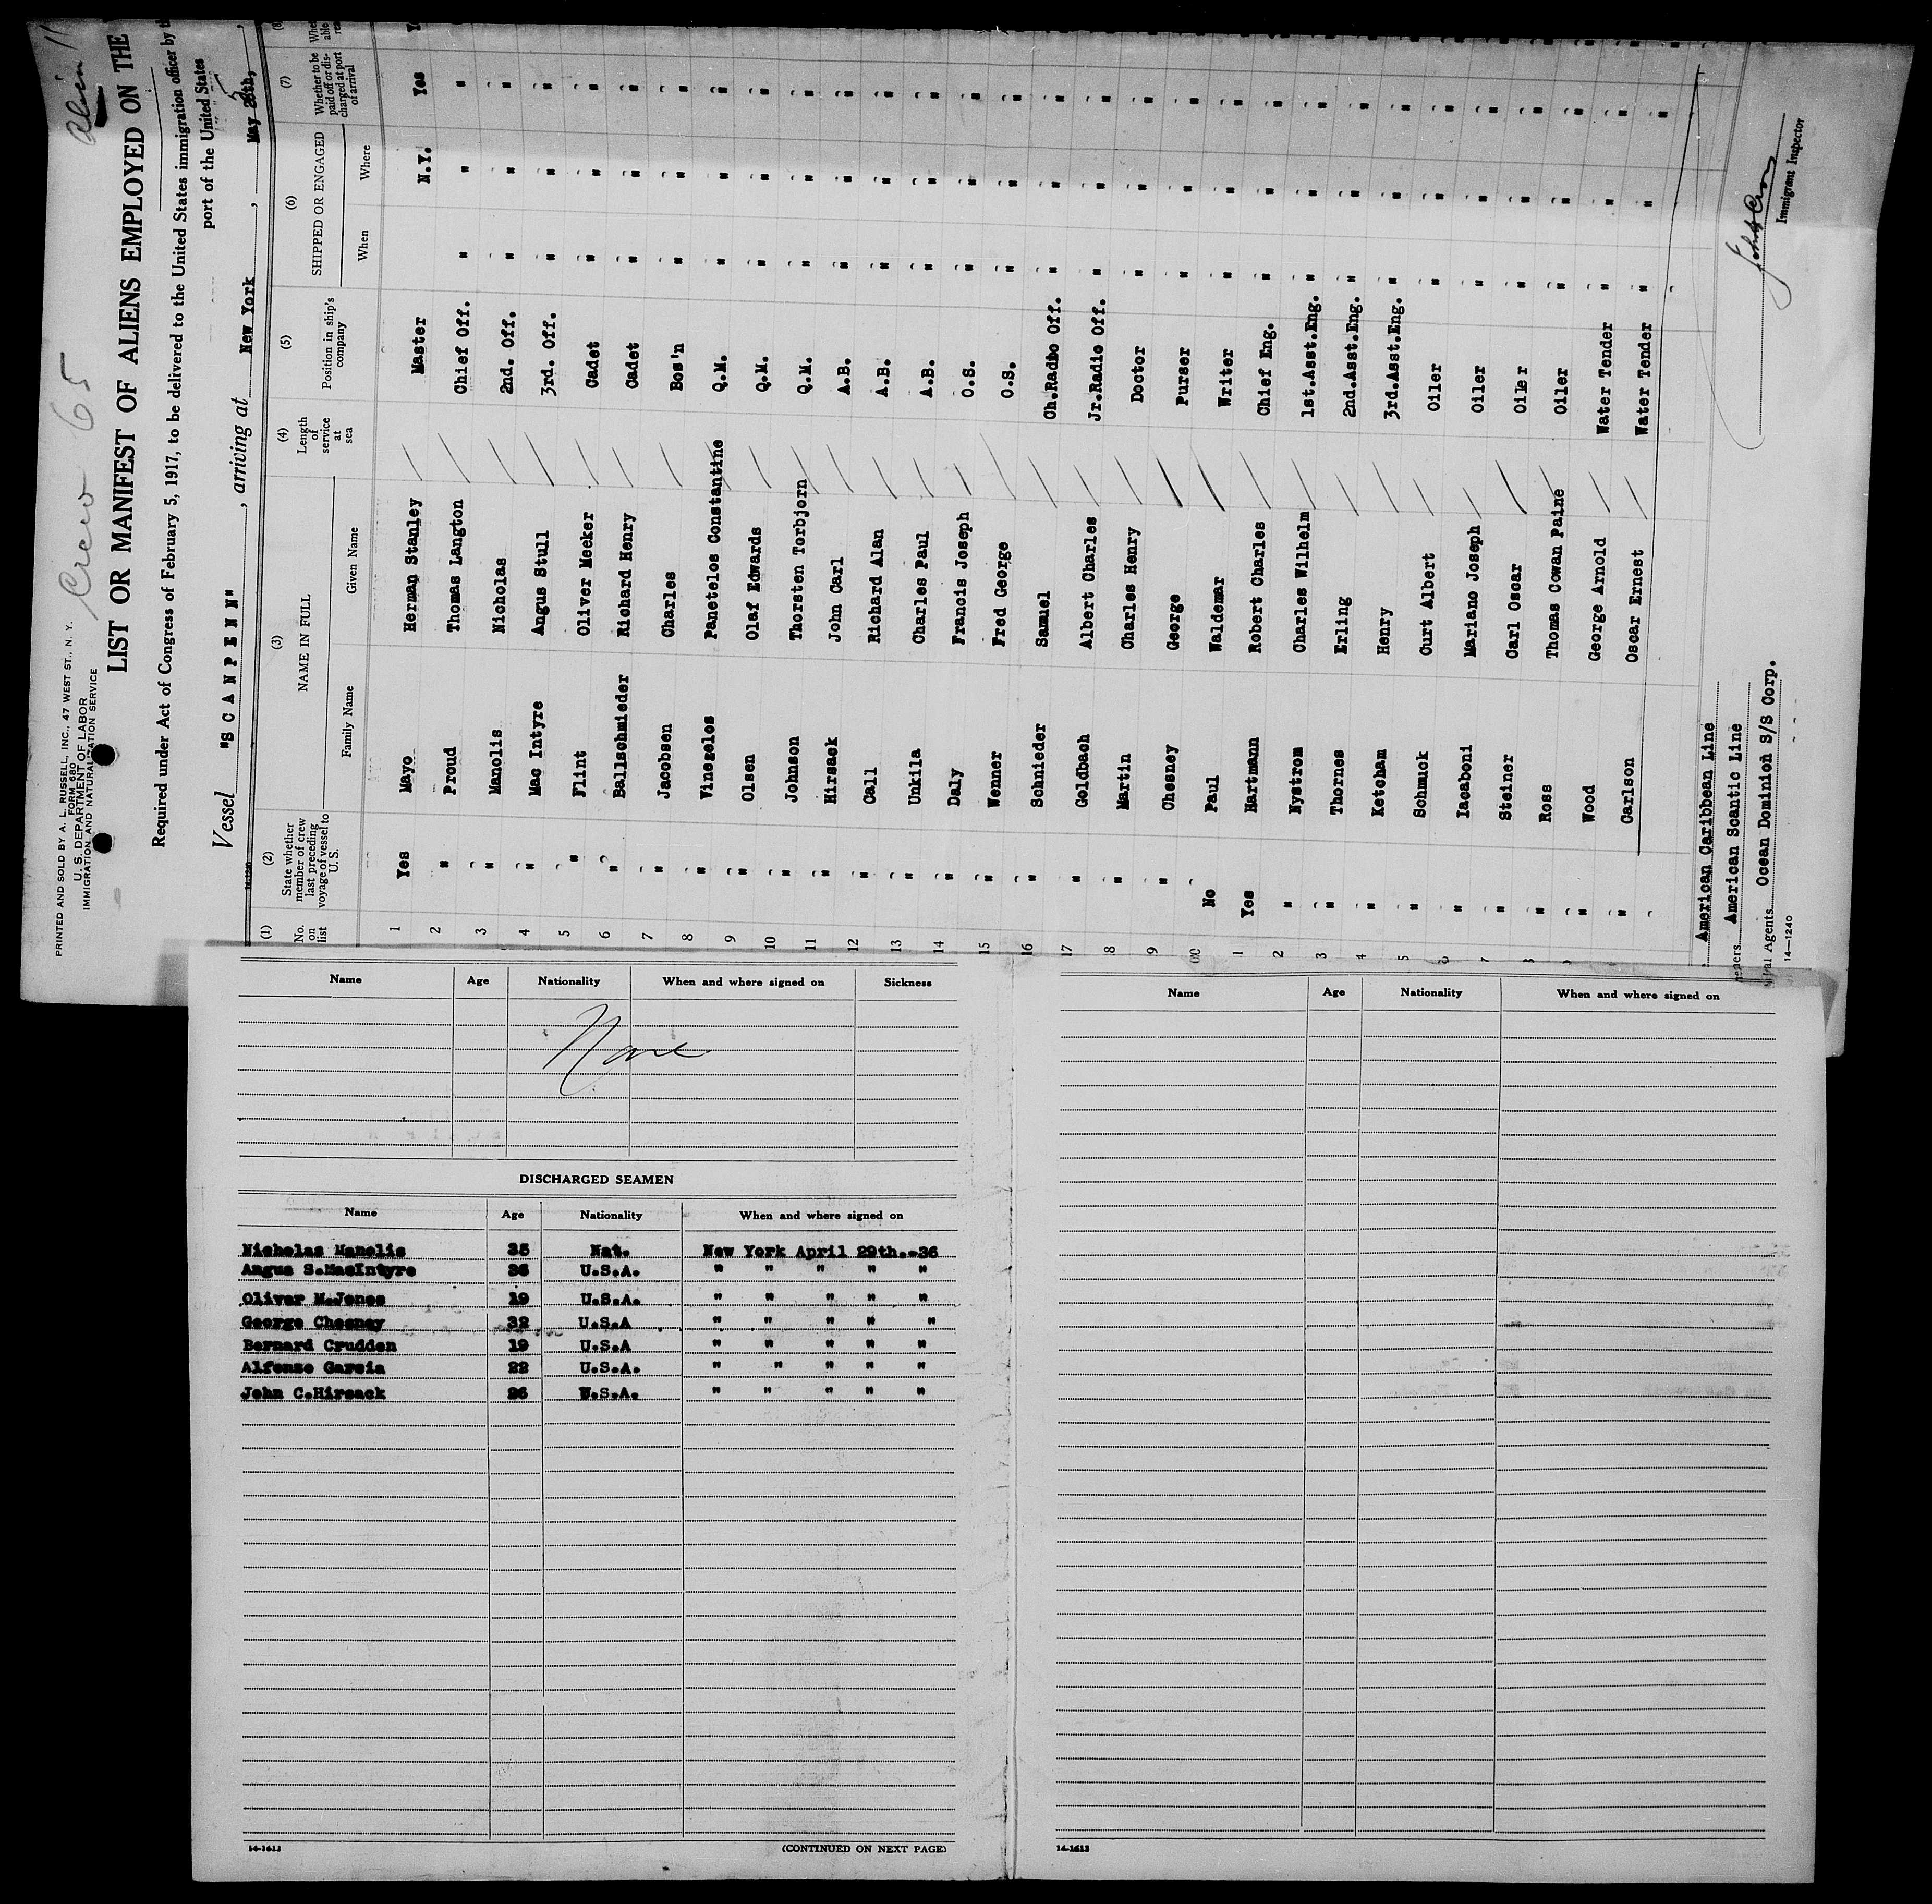 PRINTED AND SOLD BY A. L. RUSSELL, INC., 47 WEST ST., N. Y.
FORM 680
U. S. DEPARTMENT OF LABOR
IMMIGRATION AND NATURALIZATION SERVICE
Crew 65
LIST OR MANIFEST OF ALIENS EMPLOYED ON THE
Required under Act of Congress of February 5, 1917, to be delivered to the United States immigration officer by
port of the United States
Vessel "S C A N P E N N", arriving at New York, May
(1) (2) (3) (4) (5) (6) (7) (8)
No. on list
State whether member of crew last preceding voyage of vessel to U. S.
NAME IN FULL
Family Name Given Name
Length of service at sea
Position in ship's company
SHIPPED OR ENGAGED
When Where
Whether to be paid off or discharged at port of arrival
1 Yes Mayo Herman Stanley Master N.Y. Yes
2 " Proud Thomas Langton Chief Off. " " "
3 " Manolis Nicholas 2nd. Off. " " "
4 " Mac Intyre Angus Stull 3rd. Off. " " "
5 " Flint Oliver Meeker Cadet " " "
6 " Ballschmieder Richard Henry Cadet " " "
7 " Jacobsen Charles Bos'n " " "
8 " Vinegelos Panetelos Constantine Q.M. " " "
9 " Olsen Olaf Edwards Q.M. " " "
10 " Johnson Thorsten Torbjorn Q.M. " " "
11 " Hirsack John Carl A.B. " " "
12 " Call Richard Alan A.B. " " "
13 " Unkila Charles Paul A.B. " " "
14 " Daly Francis Joseph O.S. " " "
15 " Wenner Fred George O.S. " " "
16 " Schnieder Samuel Ch.Radio Off. " " "
17 " Goldbach Albert Charles Jr.Radio Off. " " "
18 " Martin Charles Henry Doctor " " "
9 " Chesney George Purser " " "
20 No Paul Waldemar Writer " " "
1 Yes Hartmann Robert Charles Chief Eng. " " "
2 " Nystrom Charles Wilhelm 1st.Asst.Eng. " " "
3 " Thornes Erling 2nd.Asst.Eng. " " "
4 " Ketcham Henry 3rd.Asst.Eng. " " "
5 " Schmuck Curt Albert Oiler " " "
6 " Iacaboni Mariano Joseph Oiler " " "
7 " Steiner Carl Oscar Oiler " " "
8 " Ross Thomas Cowan Paine Oiler " " "
" Wood George Arnold Water Tender " " "
" Carlson Oscar Ernest Water Tender " " "
American Caribbean Line
American Scantic Line
Agents Ocean Dominion S/S Corp.
14—1240
Immigrant Inspector
Name Age Nationality When and where signed on Sickness
None
DISCHARGED SEAMEN
Name Age Nationality When and where signed on
Nicholas Manolis 35 Nat. New York April 29th.-36
Angus S.MacIntyre 36 U.S.A. " " " " "
Oliver M.Jones 19 U.S.A. " " " " "
George Chesney 32 U.S.A " " " " "
Bernard Crudden 19 U.S.A " " " " "
Alfonso Garcia 22 U.S.A. " " " " "
John C.Hirsack 26 U.S.A. " " " " "
14-1613
(CONTINUED ON NEXT PAGE)
Name Age Nationality When and where signed on
14-1613